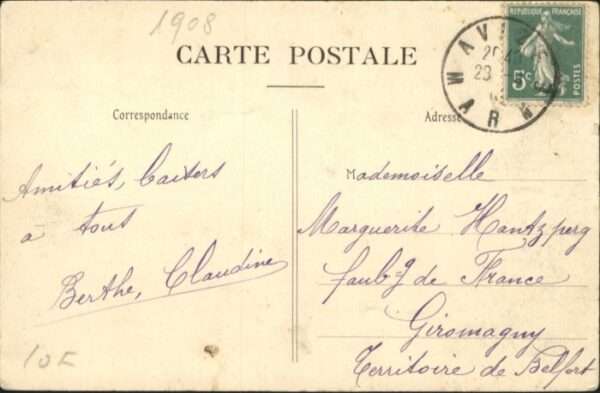 1908
CARTE POSTALE
RÉPUBLIQUE FRANÇAISE
5c
POSTES
Correspondance
Adresse
Amitiés, baisers
à tous
Berthe, Claudine
Mademoiselle
Marguerite Hantzperg
faubg de France
Giromagny
Territoire de Belfort
10F